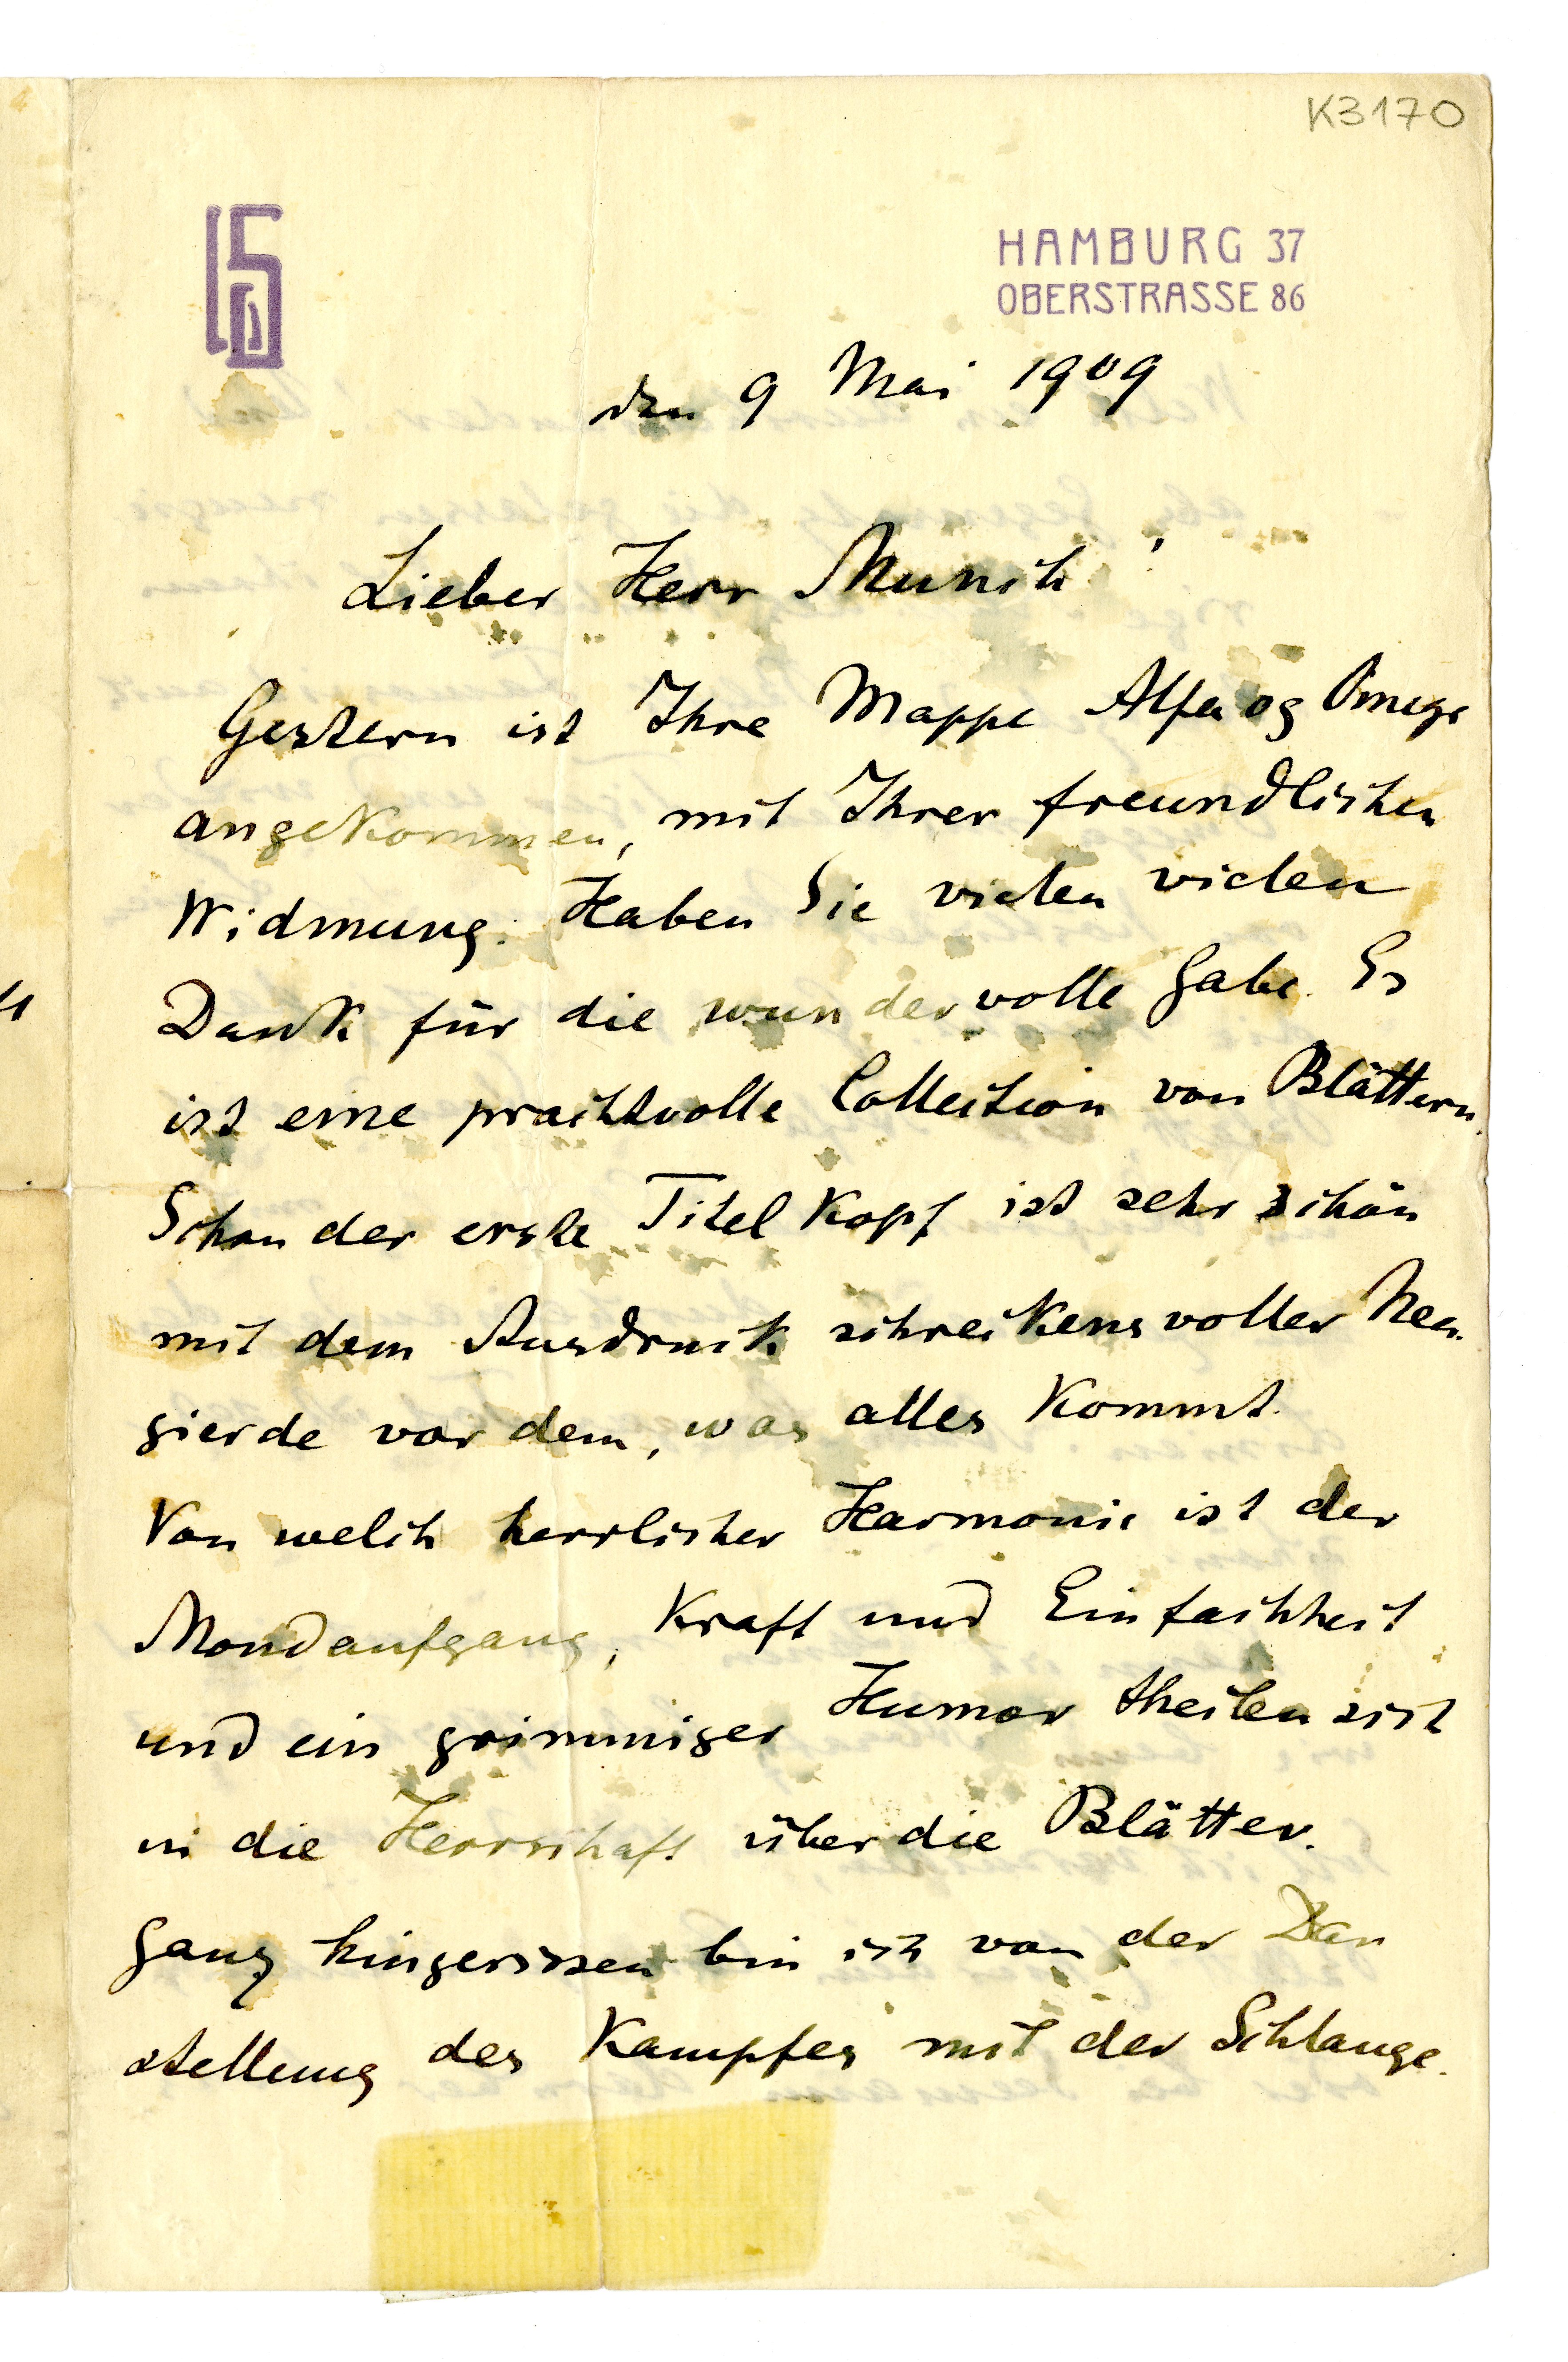 K3170
HAMBURG 37
OBERSTRASSE 86
den 9 Mai 1909
Lieber Herr Munch!
Gestern ist Ihre Mappe Alfa og Omega
angekommen, mit Ihrer freundlichen
Widmung. Haben Sie vielen vielen
Dank für die wundervolle Gabe. Es
ist eine prachtvolle Collection von Blättern.
Schon der erste Titelkopf ist sehr schön
mit dem Ausdruck schreckensvoller Neu-
gierde vor dem, was alles kommt.
Von welch herrlicher Harmonie ist der
Mondaufgang, Kraft und Einfachheit
und ein grimmiger Humor theilen sich
in die Herrschaft über die Blätter.
Ganz hingerissen bin ich von der Dar
stellung des Kampfes mit der Schlange.